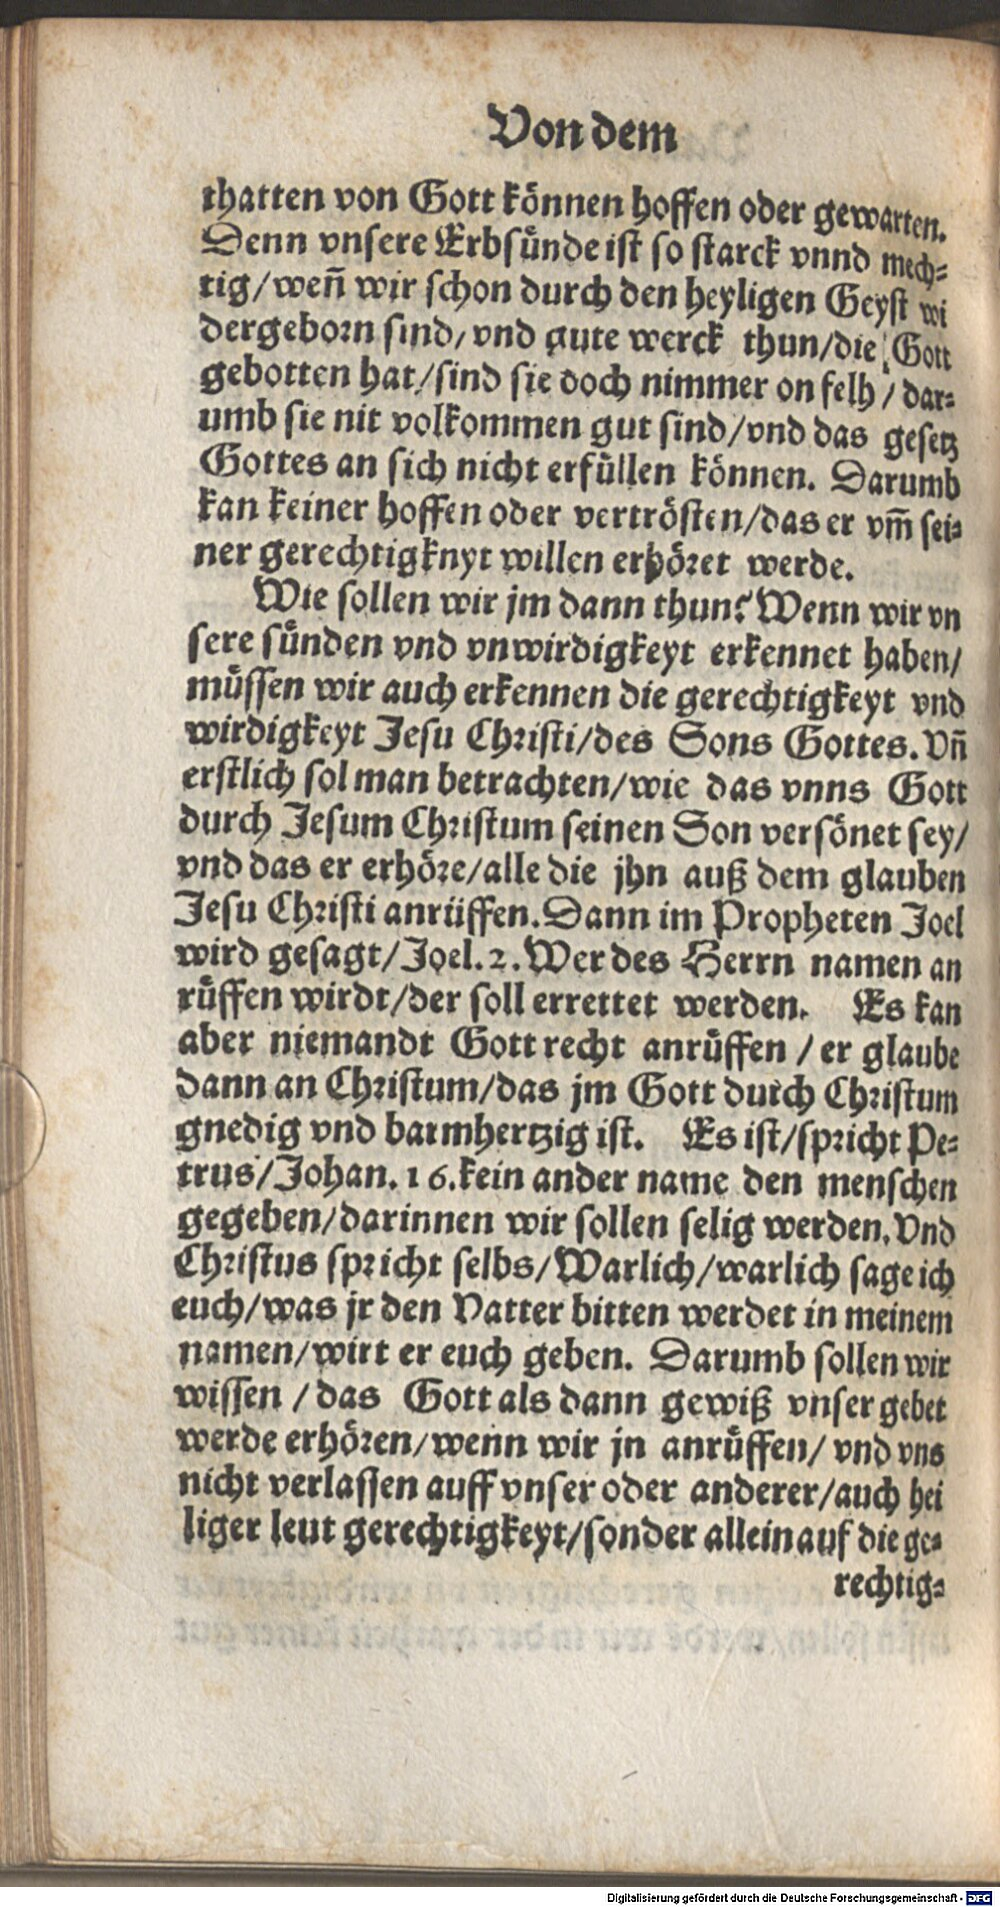 Von dem
thatten von Gott können hoffen oder gewarten.
Denn vnsere Erbsünde ist so starck vnnd mech-
tig/weñ wir schon durch den heyligen Geyst wi
dergeborn sind/vnd gute werck thun/die Gott
gebotten hat/sind sie doch nimmer on felh/dar-
umb sie nit volkommen gut sind/vnd das gesetz
Gottes an sich nicht erfüllen können. Darumb
kan keiner hoffen oder vertrösten/das er vm̃ sei-
ner gerechtigknyt willen erhöret werde.
Wie sollen wir jm dann thun? Wenn wir vn
sere sünden vnd vnwirdigkeyt erkennet haben/
müssen wir auch erkennen die gerechtigkeyt vnd
wirdigkeyt Jesu Christi/des Sons Gottes. Vñ
erstlich sol man betrachten/wie das vnns Gott
durch Jesum Christum seinen Son versönet sey/
vnd das er erhöre/alle die jhn auß dem glauben
Jesu Christi anrüffen. Dann im Propheten Joel
wird gesagt/Joel. 2. Wer des Herrn namen an
rüffen wirdt/der soll errettet werden. Es kan
aber niemandt Gott recht anrüffen/er glaube
dann an Christum/das jm Gott durch Christum
gnedig vnd barmhertzig ist. Es ist/spricht Pe-
trus/Johan. 16. kein ander name den menschen
gegeben/darinnen wir sollen selig werden. Vnd
Christus spricht selbs/Warlich/warlich sage ich
euch/was jr den Vatter bitten werdet in meinem
namen/wirt er euch geben. Darumb sollen wir
wissen/das Gott als dann gewiß vnser gebet
werde erhören/wenn wir jn anrüffen/vnd vns
nicht verlassen auff vnser oder anderer/auch hei
liger leut gerechtigkeyt/sonder allein auf die ge-
rechtig-
Digitalisierung gefördert durch die Deutsche Forschungsgemeinschaft - DFG